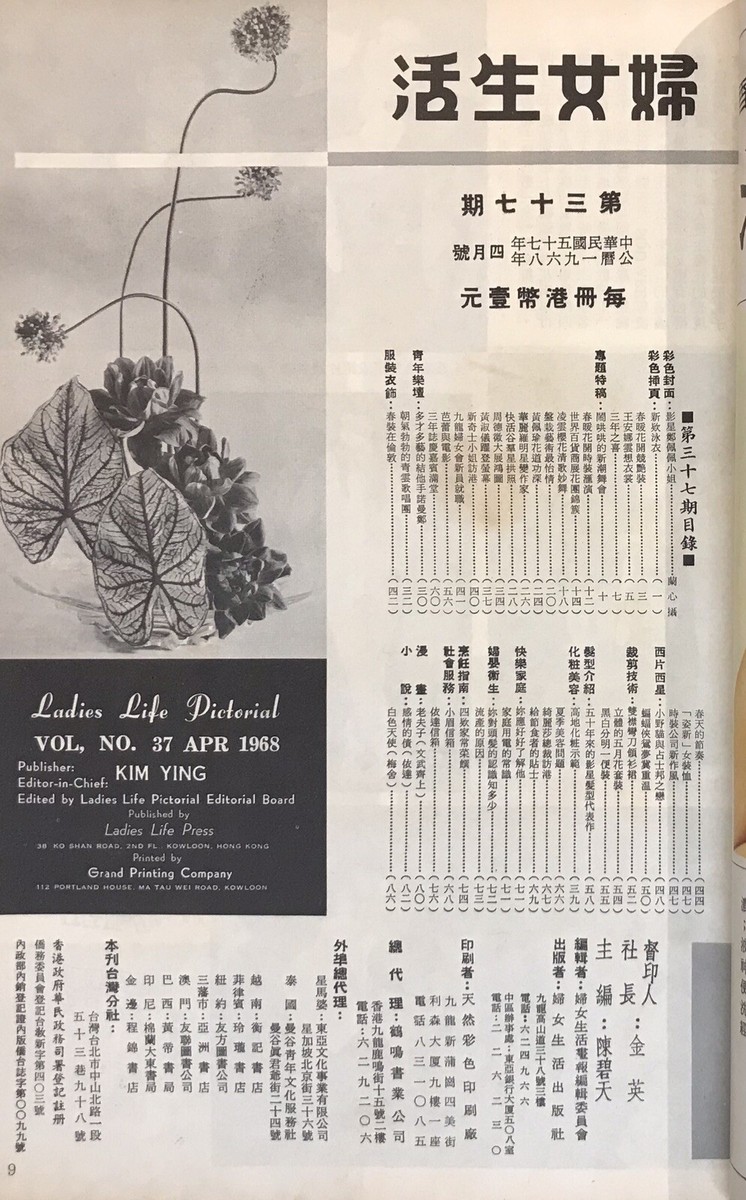 婦女生活
第三十七期
中華民國五十七年
公曆一九六八年
四月號
每冊港幣壹元
■第三十七期目錄■
彩色封面：影星鄭佩佩小姐……蘭心攝
彩色挿頁：新欵泳衣……（一）
春暖花開競艷裝……（三）
王安娜雲想衣裳……（五）
三年之喜……（七）
專題特稿：鬧哄哄的新潮舞會……（十）
春暖花開時裝滙演……（十二）
世界百貨商展花團錦簇……（十四）
凌雲櫻花清歌妙舞……（十八）
盤栽藝術最怡情……（二〇）
黃佩瑜花道功深……（二四）
華麗羅明星變作家……（二六）
快活谷羣星拱照……（二八）
周德微大展鴻圖……（三四）
黃淑儀躍登螢幕……（三七）
新奇士小姐訪港……（四〇）
九龍婦女會新員就職……（四一）
芭蕾與電影……（五六）
三年誌慶嘉賓滿堂……（六〇）
靑年樂壇：多才多藝的結他手諾曼鄭……（三〇）
朝氣勃勃的青雲歌唱團……（三二）
服裝衣飾：春裝在倫敦……（四二）
春天的節奏……（四四）
「姿新」女裝恤……（四七）
時裝公司新作風……（四七）
西片西星：小野貓與占士邦之戀……（四八）
蝙蝠俠鴛夢冀重溫……（五〇）
裁剪技術：雙襟彎刀領衫裙……（五二）
立體的五月花套裝……（五四）
黑白分明一便裝……（五五）
髮型介紹：五十年來的影星髮型代表作……（五八）
化粧美容：高地化粧示範……（三九）
夏季美容問題……（六六）
綺麗莎莎總裁訪港……（六七）
給節食者的貼士……（六九）
快樂家庭：妳應好好了解他……（七一）
家庭用電的常識……（七一）
婦嬰衛生：妳對頭髮的認識知多少……（七二）
流產的原因……（七三）
烹飪指南：四欵家常菜饌……（七四）
社會服務：小眉信箱……（六八）
依達信箱……（七六）
漫畫：老夫子（文武齊上）……（八〇）
小說：感情的債（依達）……（八二）
白色天使（梅舍）……（八六）
Ladies Life Pictorial
VOL, NO. 37 APR 1968
Publisher:
Editor-in-Chief: KIM YING
Edited by Ladies Life Pictorial Editorial Board
Published by
Ladies Life Press
38 KO SHAN ROAD, 2ND FL. KOWLOON, HONG KONG
Printed by
Grand Printing Company
112 PORTLAND HOUSE, MA TAU WEI ROAD, KOWLOON
督印人
社長：金英
主編：陳碧天
編輯者：婦女生活畫報編輯委員會
出版者：婦女生活出版社
九龍高山道三十八號三樓
電話：六二四九六六
中區辦事處：東亞銀行大厦五〇八室
電話：二二六二三〇
印刷者：天然彩色印刷廠
九龍新蒲崗四美街
利森大厦九樓一座
電話八三一〇八五
總代理：鶴鳴書業公司
香港九龍鹿鳴街十五號二樓
電話：六二九二〇六
外埠總代理：
星馬婆：東亞文化事業有限公司
星加坡北京街三十六號
泰國：曼谷青年文化服務社
曼谷眞君爺街二十四號
越南：衡記書店
菲律賓：玲瓏書店
紐約：友方圖書公司
三藩市：亞洲書店
澳門：友聯圖書公司
巴西：黃帝書局
印尼：棉蘭大東書局
金邊：程錦書店
本刊台灣分社：
台灣台北市中山北路一段
五十三巷九十八號
香港政府華民政務司署登記註册
僑務委員會登記台教新字第四〇三號
內政部內銷登記證內版僑台誌字第〇〇九九號
9